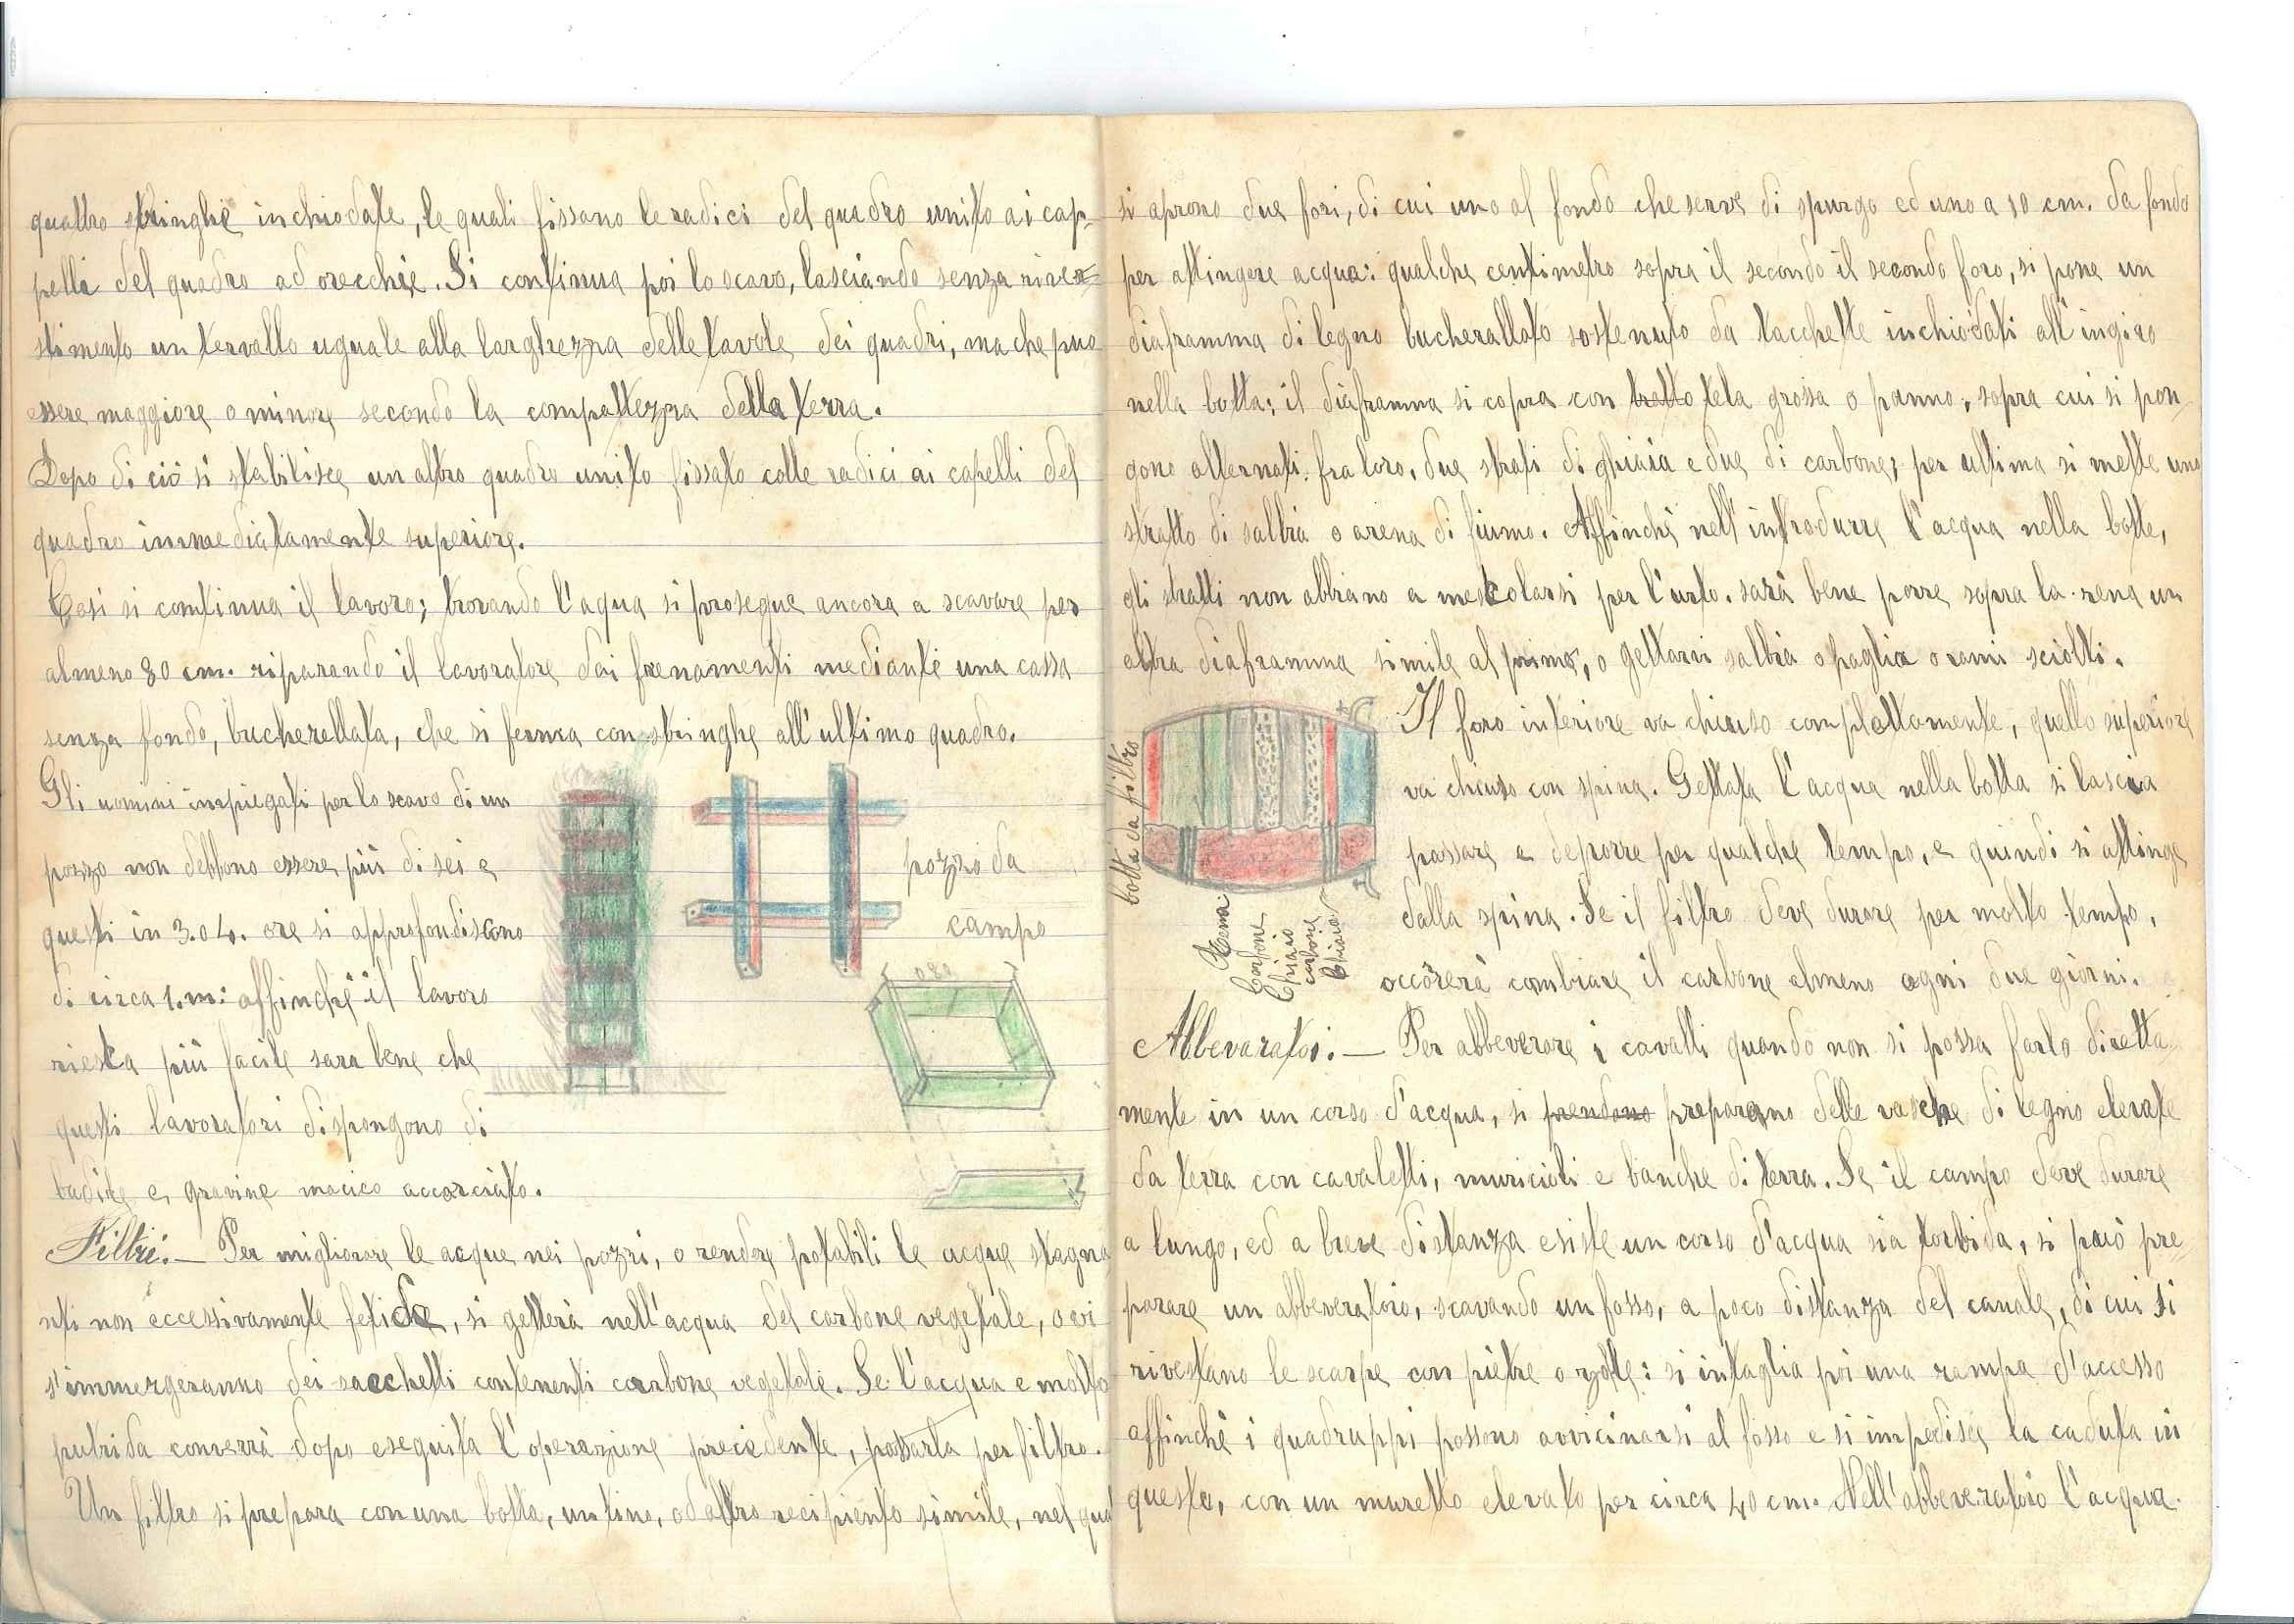 quattro stringhe inchiodate, le quali fissano le radici del quadro unito ai cap-
pelli del quadro ad orecchie. Si continua poi lo scavo, lasciando senza rives=
stimento un tervallo uguale alla larghezza delle tavole dei quadri, ma che puo
essere maggiore o minore secondo la compattezza della terra.
Dopo di ciò si stabilisce un altro quadro unito fissato colle radici ai capelli del
quadro immediatamente superiore.
Così si continua il lavoro; trovando l'aqua si prosegue ancora a scavare per
almeno 80 cm. riparando il lavoratore dai frenamenti mediante una cassa
senza fondo, bucherellata, che si ferma con stringhe all'ultimo quadro.
Gli uomini impiegati per lo scavo di un
pozzo non debbono essere più di sei e
questi in 3. o 4. ore si approfondiscono
di circa 1. m: affinchè il lavoro
riesca più facile sara bene che
questi lavoratori dispongono di
badile e gravine manico accorciato.
pozzo da
campo
080
Filtri. — Per migliorare le acque nei pozzi, o rendere potabili le acque stagna
nti non eccessivamente fetide, si getterà nell'acqua del carbone vegetale, o vi
s'immergeranno dei sacchetti contenenti carbone vegetale. Se l'acqua e molto
putrida converrà dopo eseguita l'operazione precedente, passarla per filtro.
Un filtro si prepara con una botta, un tino, od altro recipiento simile, nel qua
si aprono due fori, di cui uno al fondo che serve di spurgo ed uno a 10 cm. da fondo
per attingere acqua: qualche centimetro sopra il secondo il secondo foro, si pone un
diaframma di legno bucherallato sostenuto da tacchette inchiodati all'ingiro
nella botta; il diaframma si copra con tratto tela grossa o panno, sopra cui si pon-
gono alternati fra loro, due strati di ghiaia e due di carbone; per ultima si mette uno
stratto di salbia o arena di fiume. Affinchè nell'introdurre l'acqua nella botte,
gli stratti non abbiano a mescolarsi per l'urto. sarà bene porre sopra la rena un
altra diaframma simile al primo, o gettarvi salbia o paglia o rami sciolti.
botta da filtro
Rena
Carbone
Ghiaia
carbone
Ghiaia
Il foro inferiore va chiuso complettamente, quello superiore
va chiuso con spina. Gettata l'acqua nella botta si lascia
passare e deporre per qualche tempo, e quindi si attinge
dalla spina. Se il filtro deve durare per molto tempo,
occorerà cambiare il carbone almeno ogni due giorni.
Abbevaratoi. — Per abbeverare i cavalli quando non si possa farlo diretta=
mente in un corso d'acqua, si prendono preparano delle vasche di legno elevate
da terra con cavaletti, muricioli e banche di terra. Se il campo deve durare
a lungo, ed a breve distanza esiste un corso d'acqua sia torbida, si può pre=
parare un abbeveratoio, scavando un fosso, a poco distanza del canale, di cui si
rivestano le scarpe con pietre o zolle: si intaglia poi una rampa d'accesso
affinchè i quadruppi possono avvicinarsi al fosso e si impedisce la caduta in
queste, con un muretto elevato per circa 40 cm. Nell'abbeveratoio l'acqua